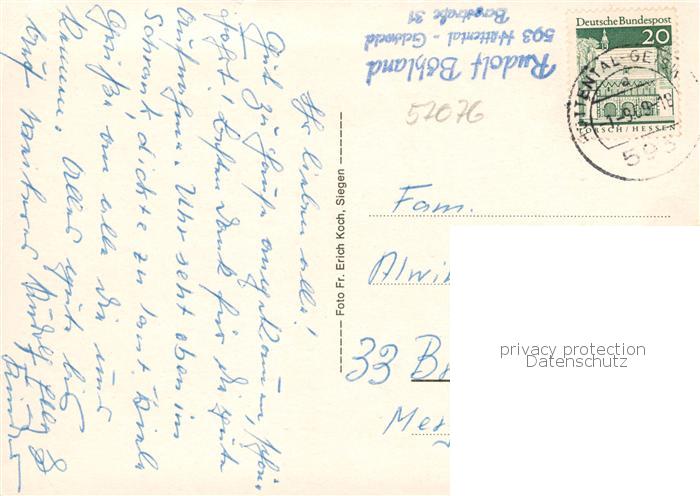 Ihr lieben alle!
Gut zu Hause angekommen, schön
gehabt! Besten Dank für die gute
Aufnahme. Uhr steht oben im
Schrank, dichte zu laut. Viele
Grüße an alle die uns
kennen. Alles gute bis
auf weiteres
Rudolf Böhland
593 Hüttental - Geisweid
Bergstraße 31
52076
Deutsche Bundespost
20
LORSCH / HESSEN
HÜTTENTAL-GEIS
593
Foto Fr. Erich Koch, Siegen
Fam.
Alwi
33 B
Me
privacy protection
Datenschutz